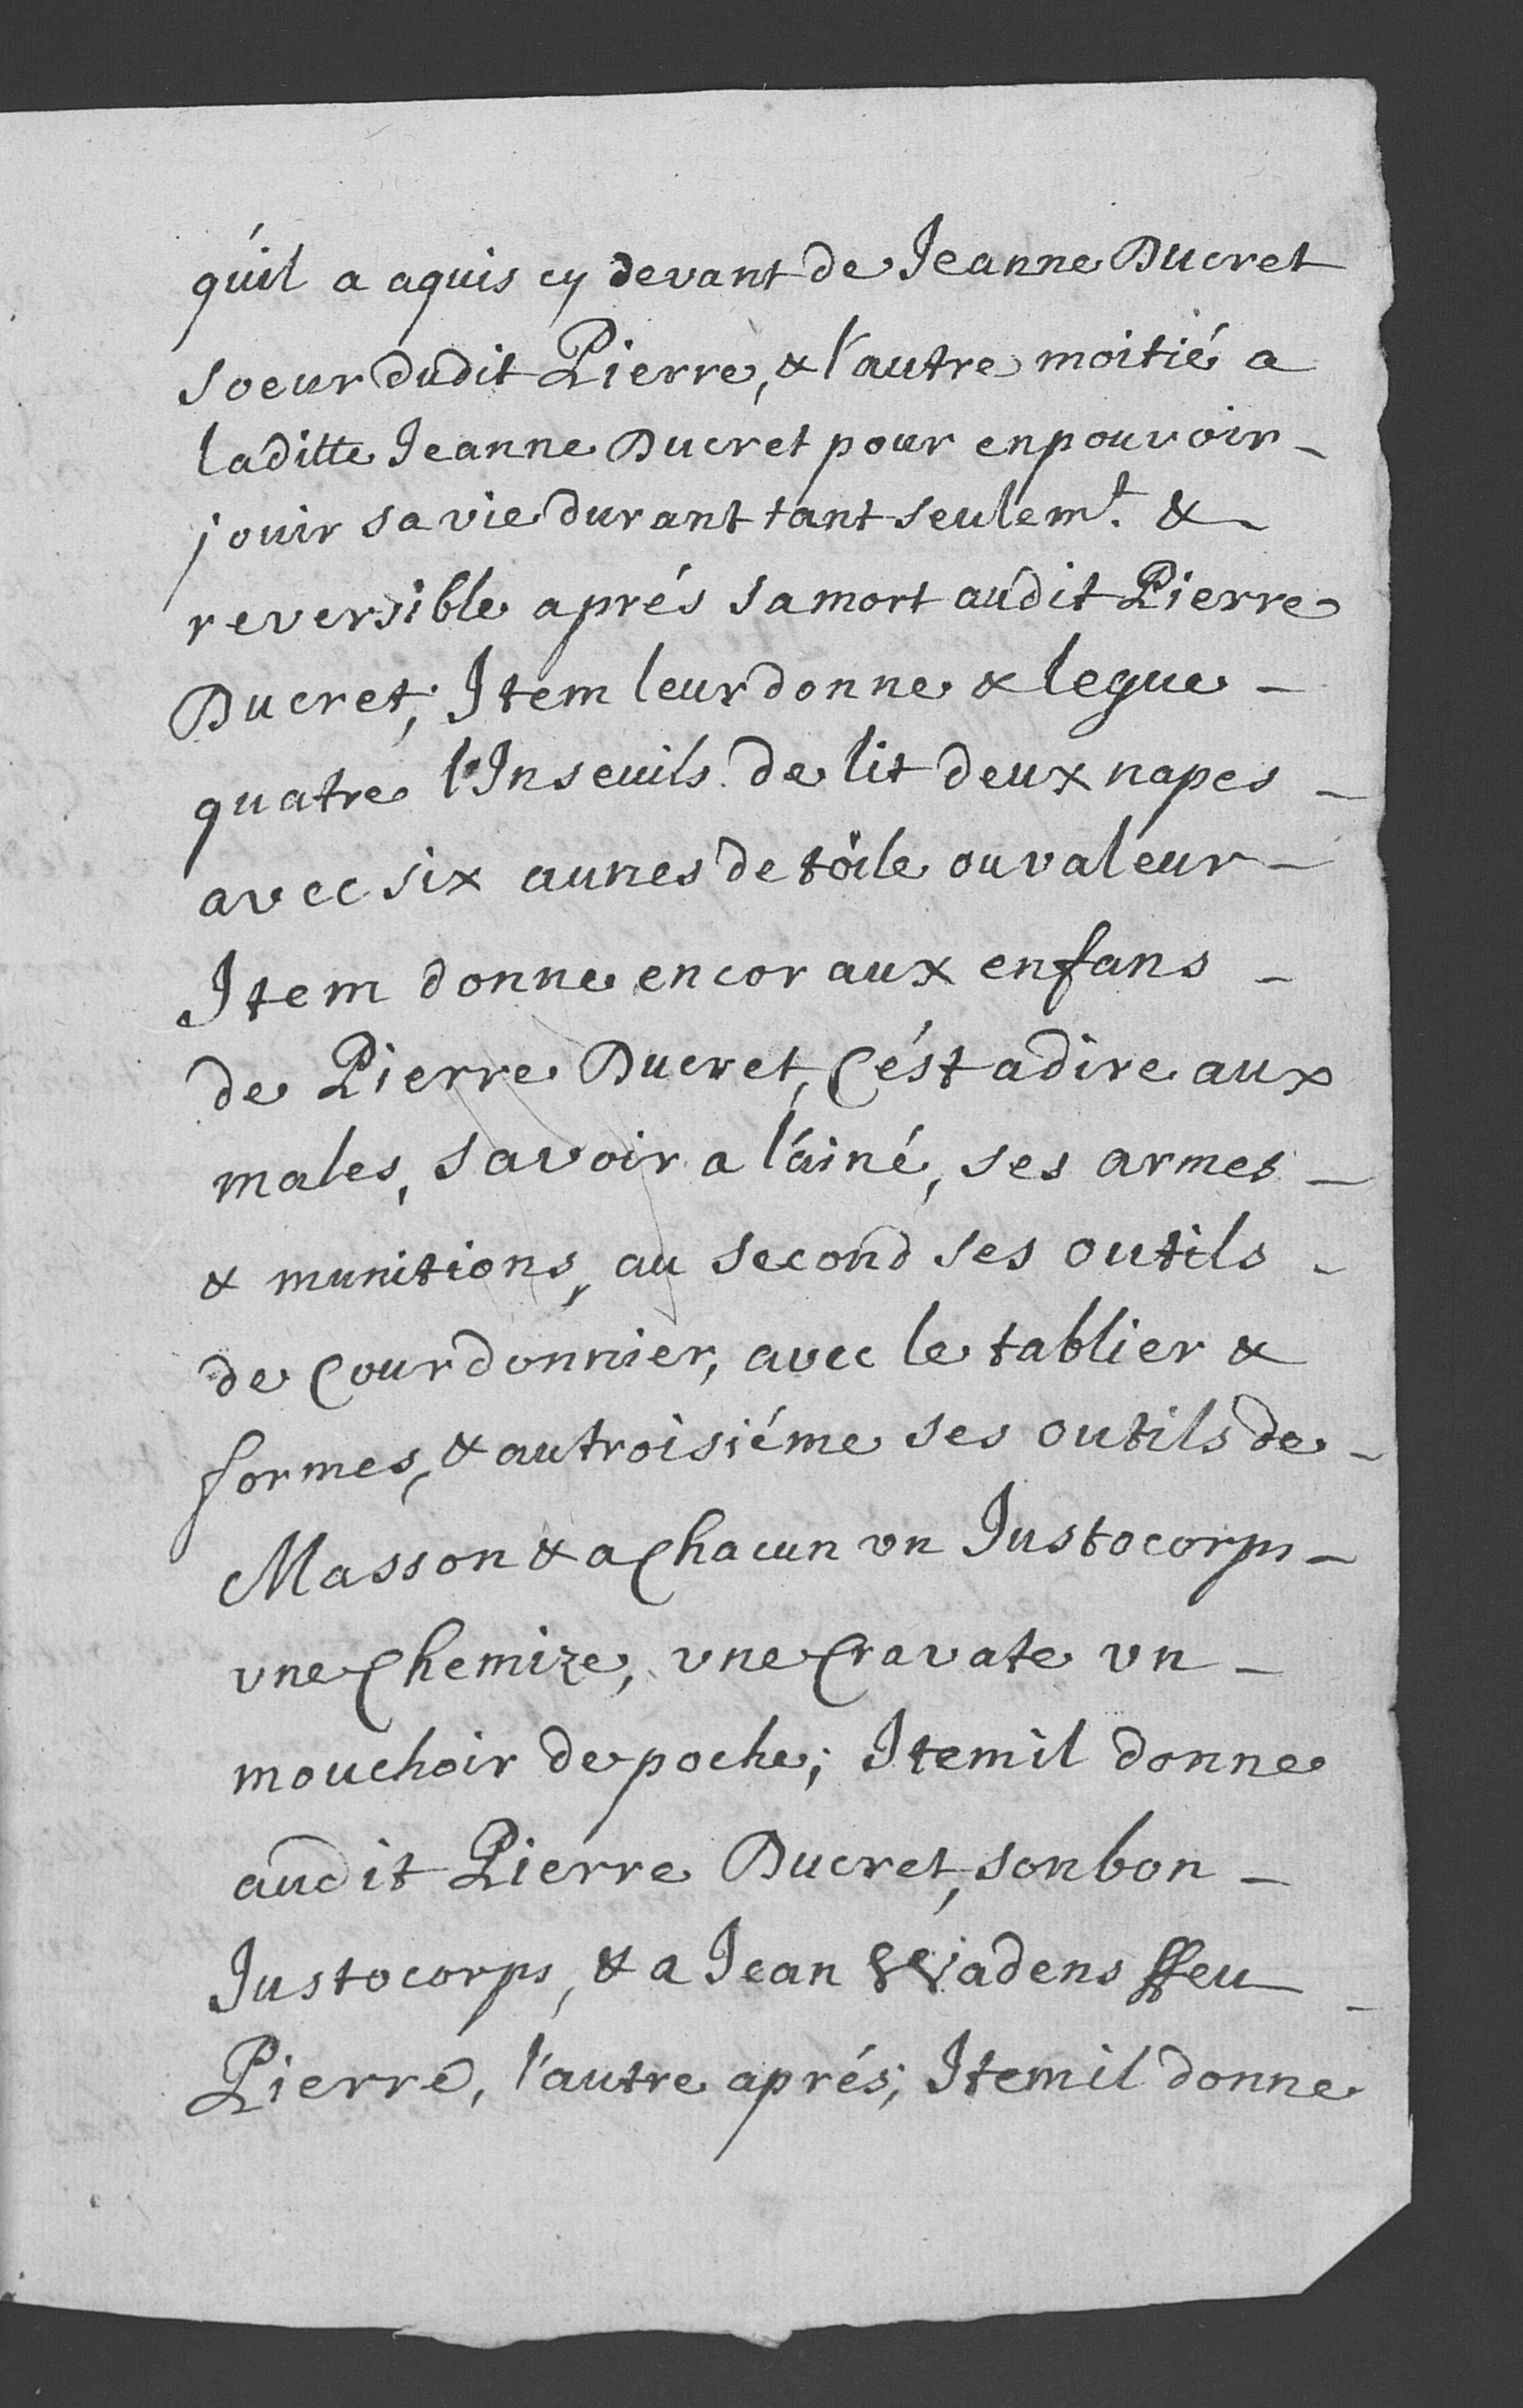 qu'il a aquis cy devant de Jeanne Ducret
soeur dudit Pierre, & l'autre moitié a
laditte Jeanne Ducret pour en pouvoir -
jouir sa vie durant tant seulemt. & -
reversible aprés sa mort audit Pierre
Ducret; Item leur donne & legue -
quatre l'Inseuils de lit deux napes -
avec six aunes de toile ou valeur -
Item donne encor aux enfans -
de Pierre Ducret, C'ést a dire aux
males, savoir a l'ainé, ses armes -
& munitions, au second ses outils -
de Courdonnier, avec le tablier &
formes, & au troisiéme ses outils de -
Masson & a Chacun vn Justocorps -
vne Chemize, vne Cravate vn -
mouchoir de poche; Item il donne
audit Pierre Ducret, son bon -
Justocorps, & a Jean Wadens ffeu -
Pierre, l'autre aprés; Item il donne